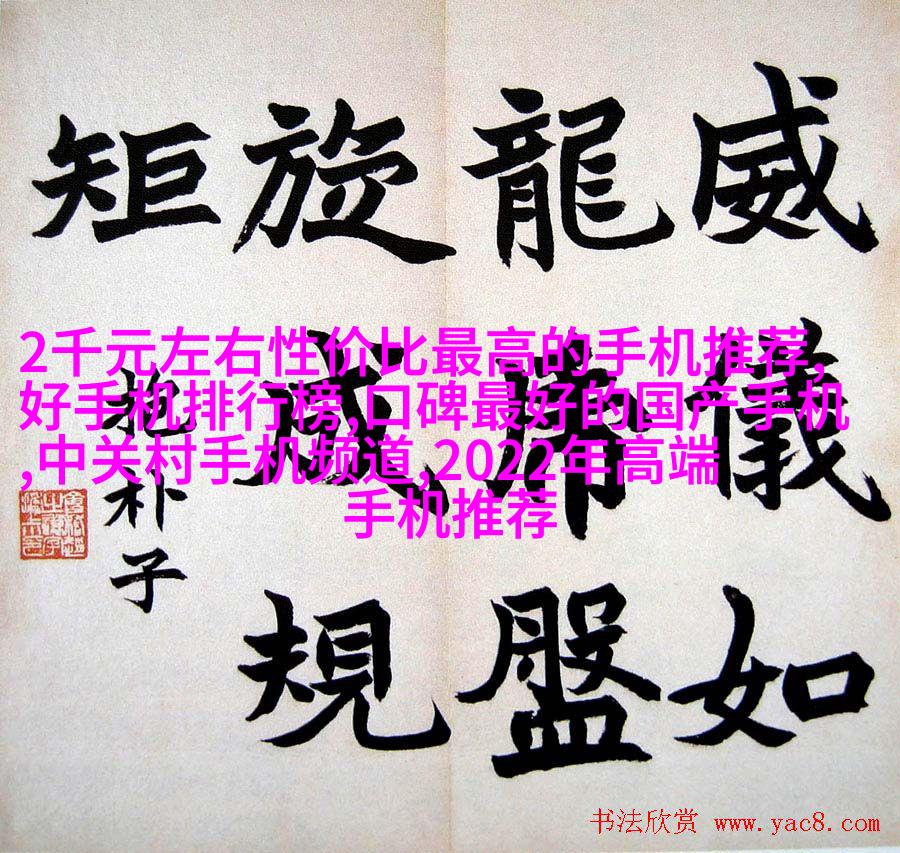 威儀如
龍虎盤
旋成規
矩
抱朴子
2千元左右性价比最高的手机推荐,
好手机排行榜,口碑最好的国产手机
,中关村手机频道,2022年高端
手机推荐
书法欣赏 www.yac8.com